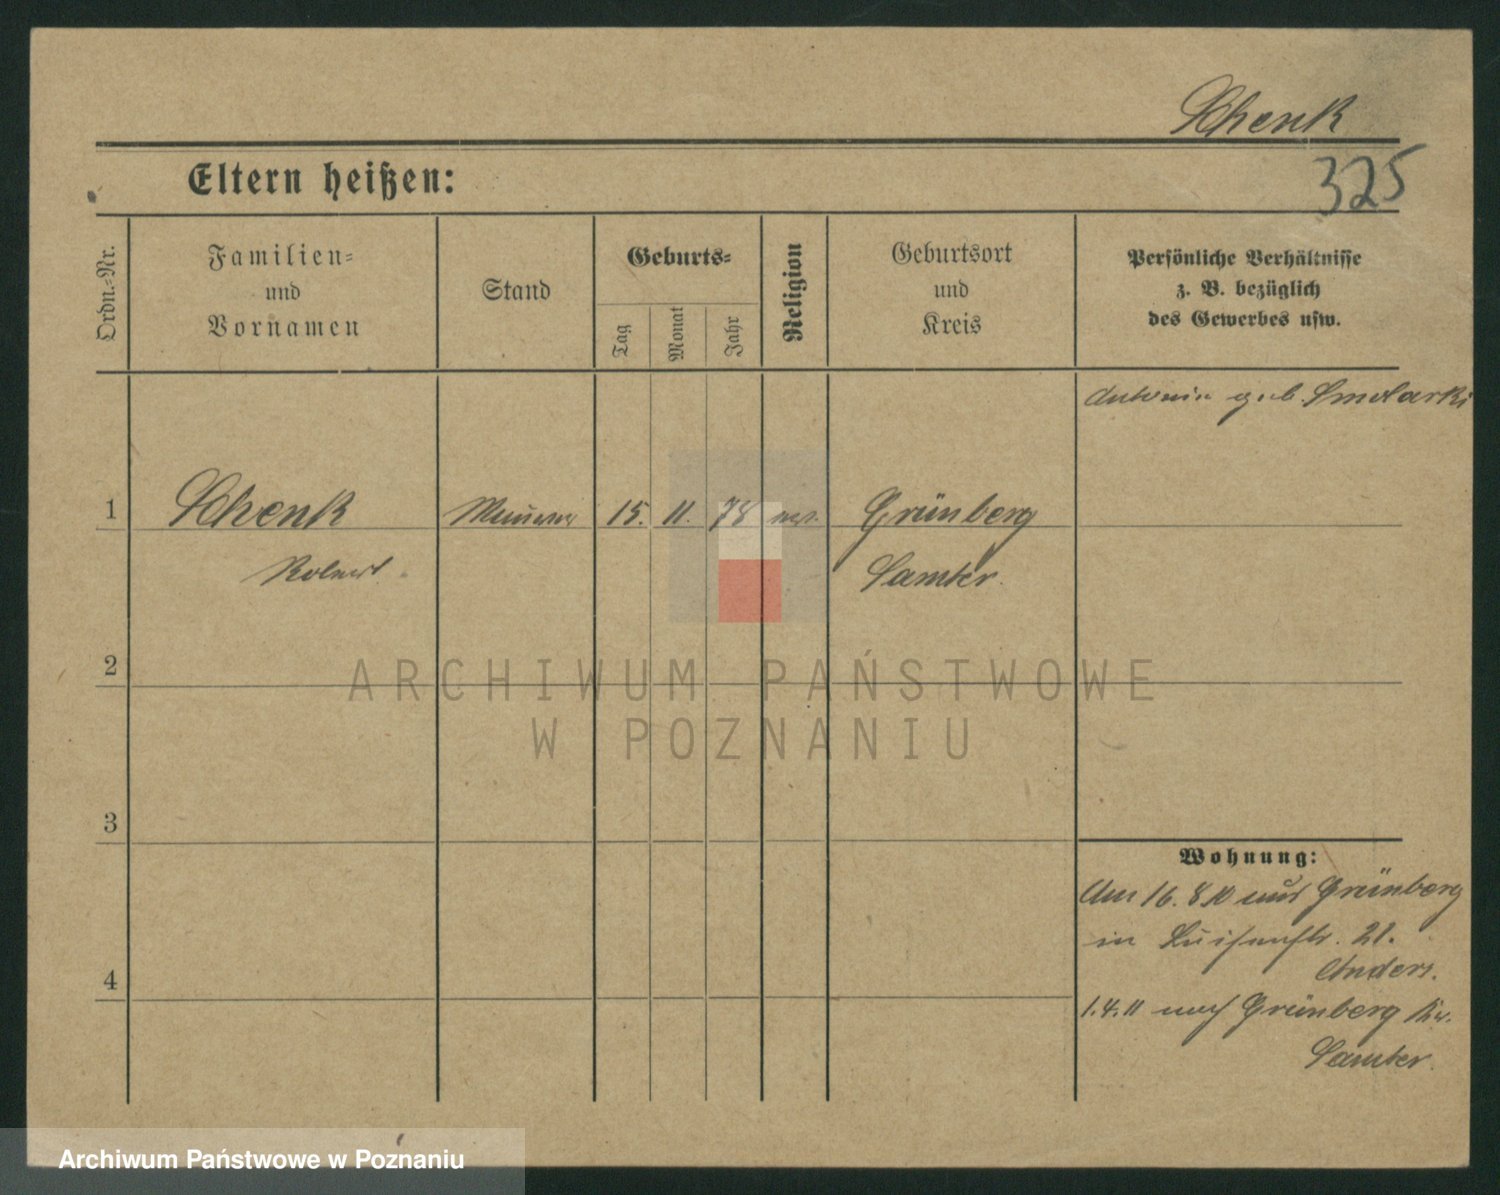 Schenk
325
Eltern heißen:
Ordn.-Nr.
Familien-
und
Vornamen
Stand
Geburts-
Tag
Monat
Jahr
Religion
Geburtsort
und
Kreis
Persönliche Verhältnisse
z. B. bezüglich
des Gewerbes usw.
Antonie geb. Smolarki
1 Schenk Maurer 15. 11. 78 Grünberg
Robert Samter.
2
3
4
Wohnung:
Am 16. 8 10 aus Grünberg
in Luisenstr. 21.
Anders.
1.4.11 nach Grünberg Kr.
Samter.
ARCHIWUM PAŃSTWOWE
W POZNANIU
Archiwum Państwowe w Poznaniu